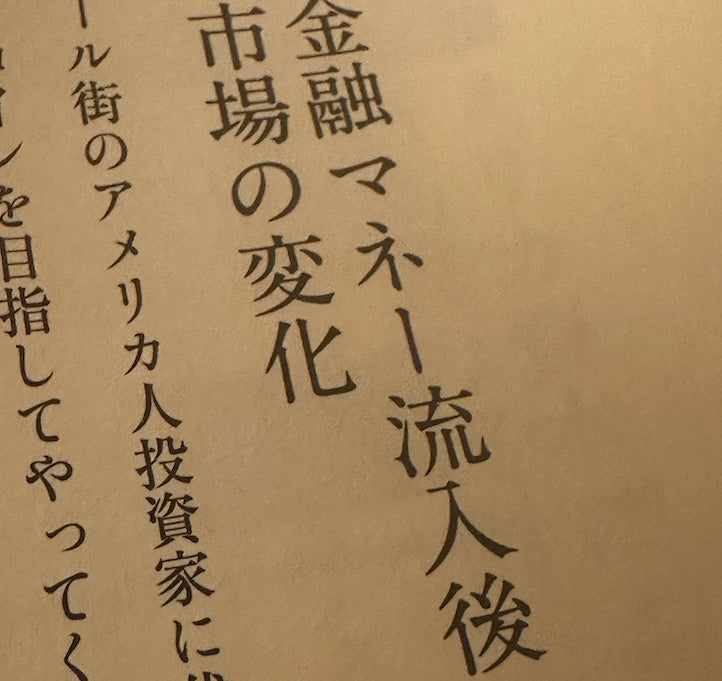 金融マネー流入後
市場の変化
ール街のアメリカ人投資家に
を目指してやってく